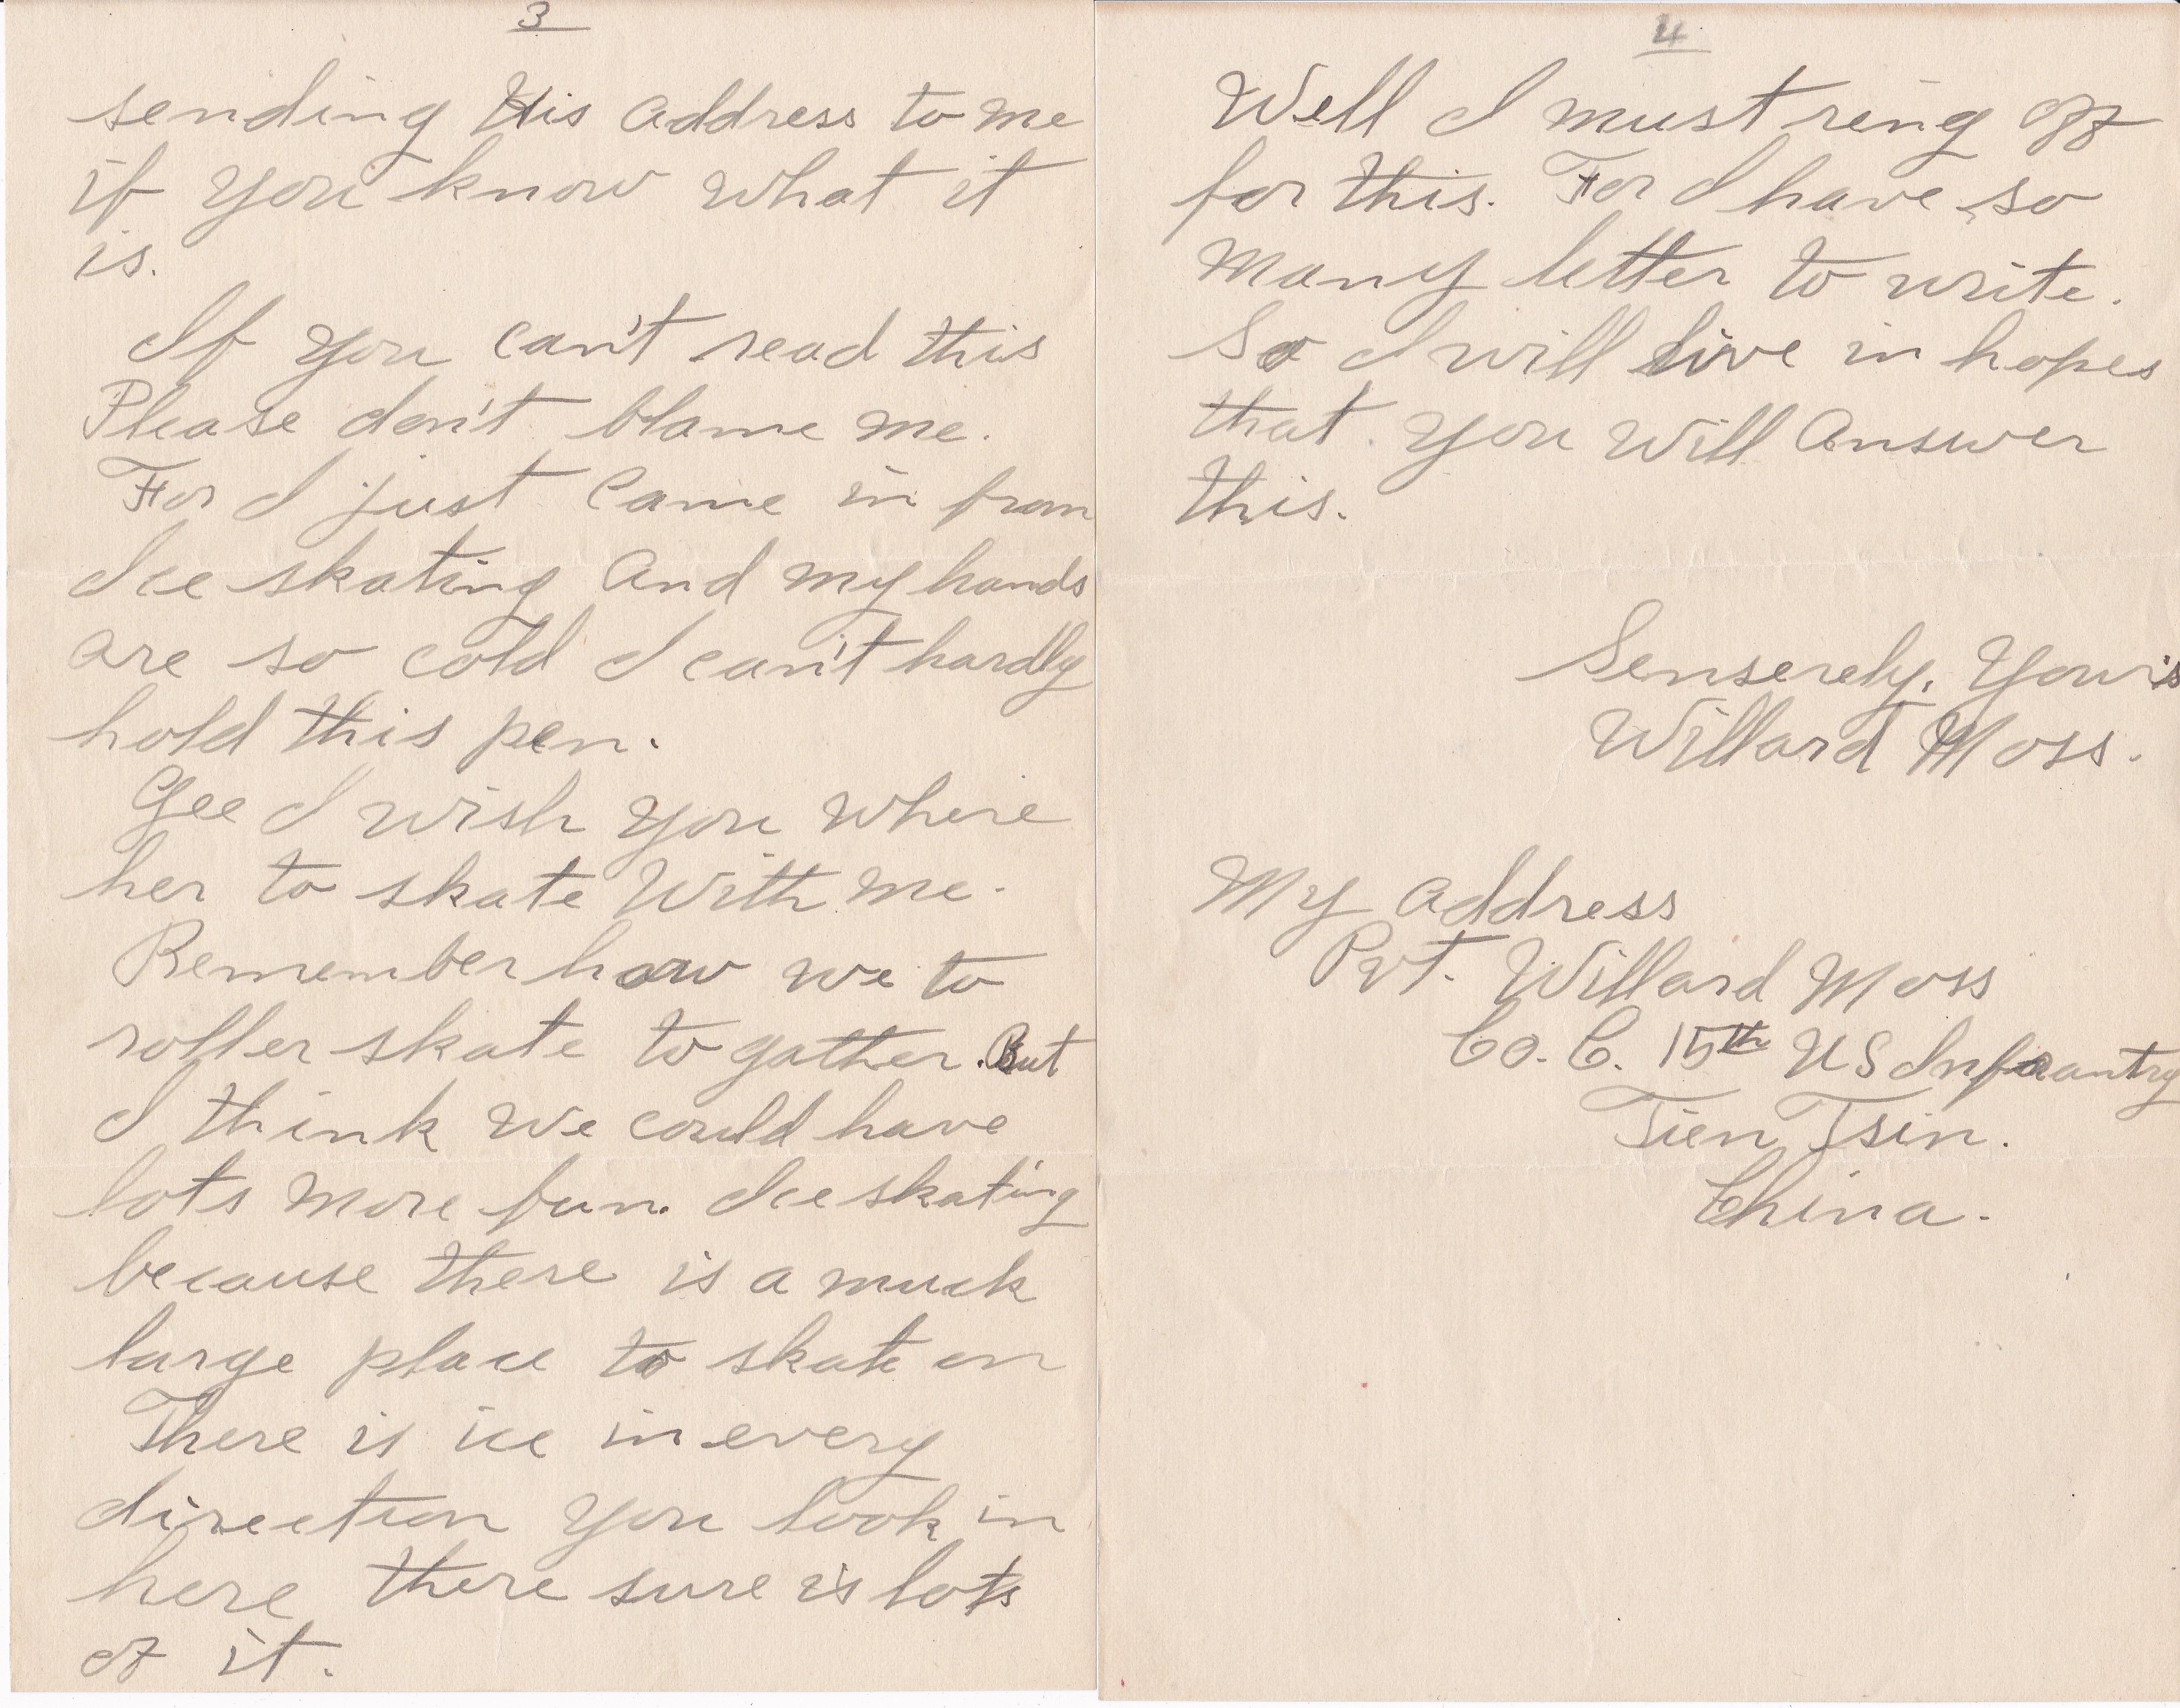 3
sending His address to me
if you know what it
is.
If you can't read this
Please don't blame me.
For I just Came in from
Ice skating And my hands
are so cold I can't hardly
hold this pen.
Gee I wish you where
her to skate With me.
Remember how we to
roller skate to gather. But
I think we could have
lots more fun. Ice skating
because there is a muck
large place to skate on
There is ice in every
direction you look in
here, there sure is lots
of it.
4
Well I must reng off
for this. For I have so
many letter to write.
So I will live in hopes
that you will Answer
this.
Senserely, Your's
Willard Moss.
My address
Pvt. Willard Moss
Co. C. 15th US Infaantry
Tien Tsin.
China.